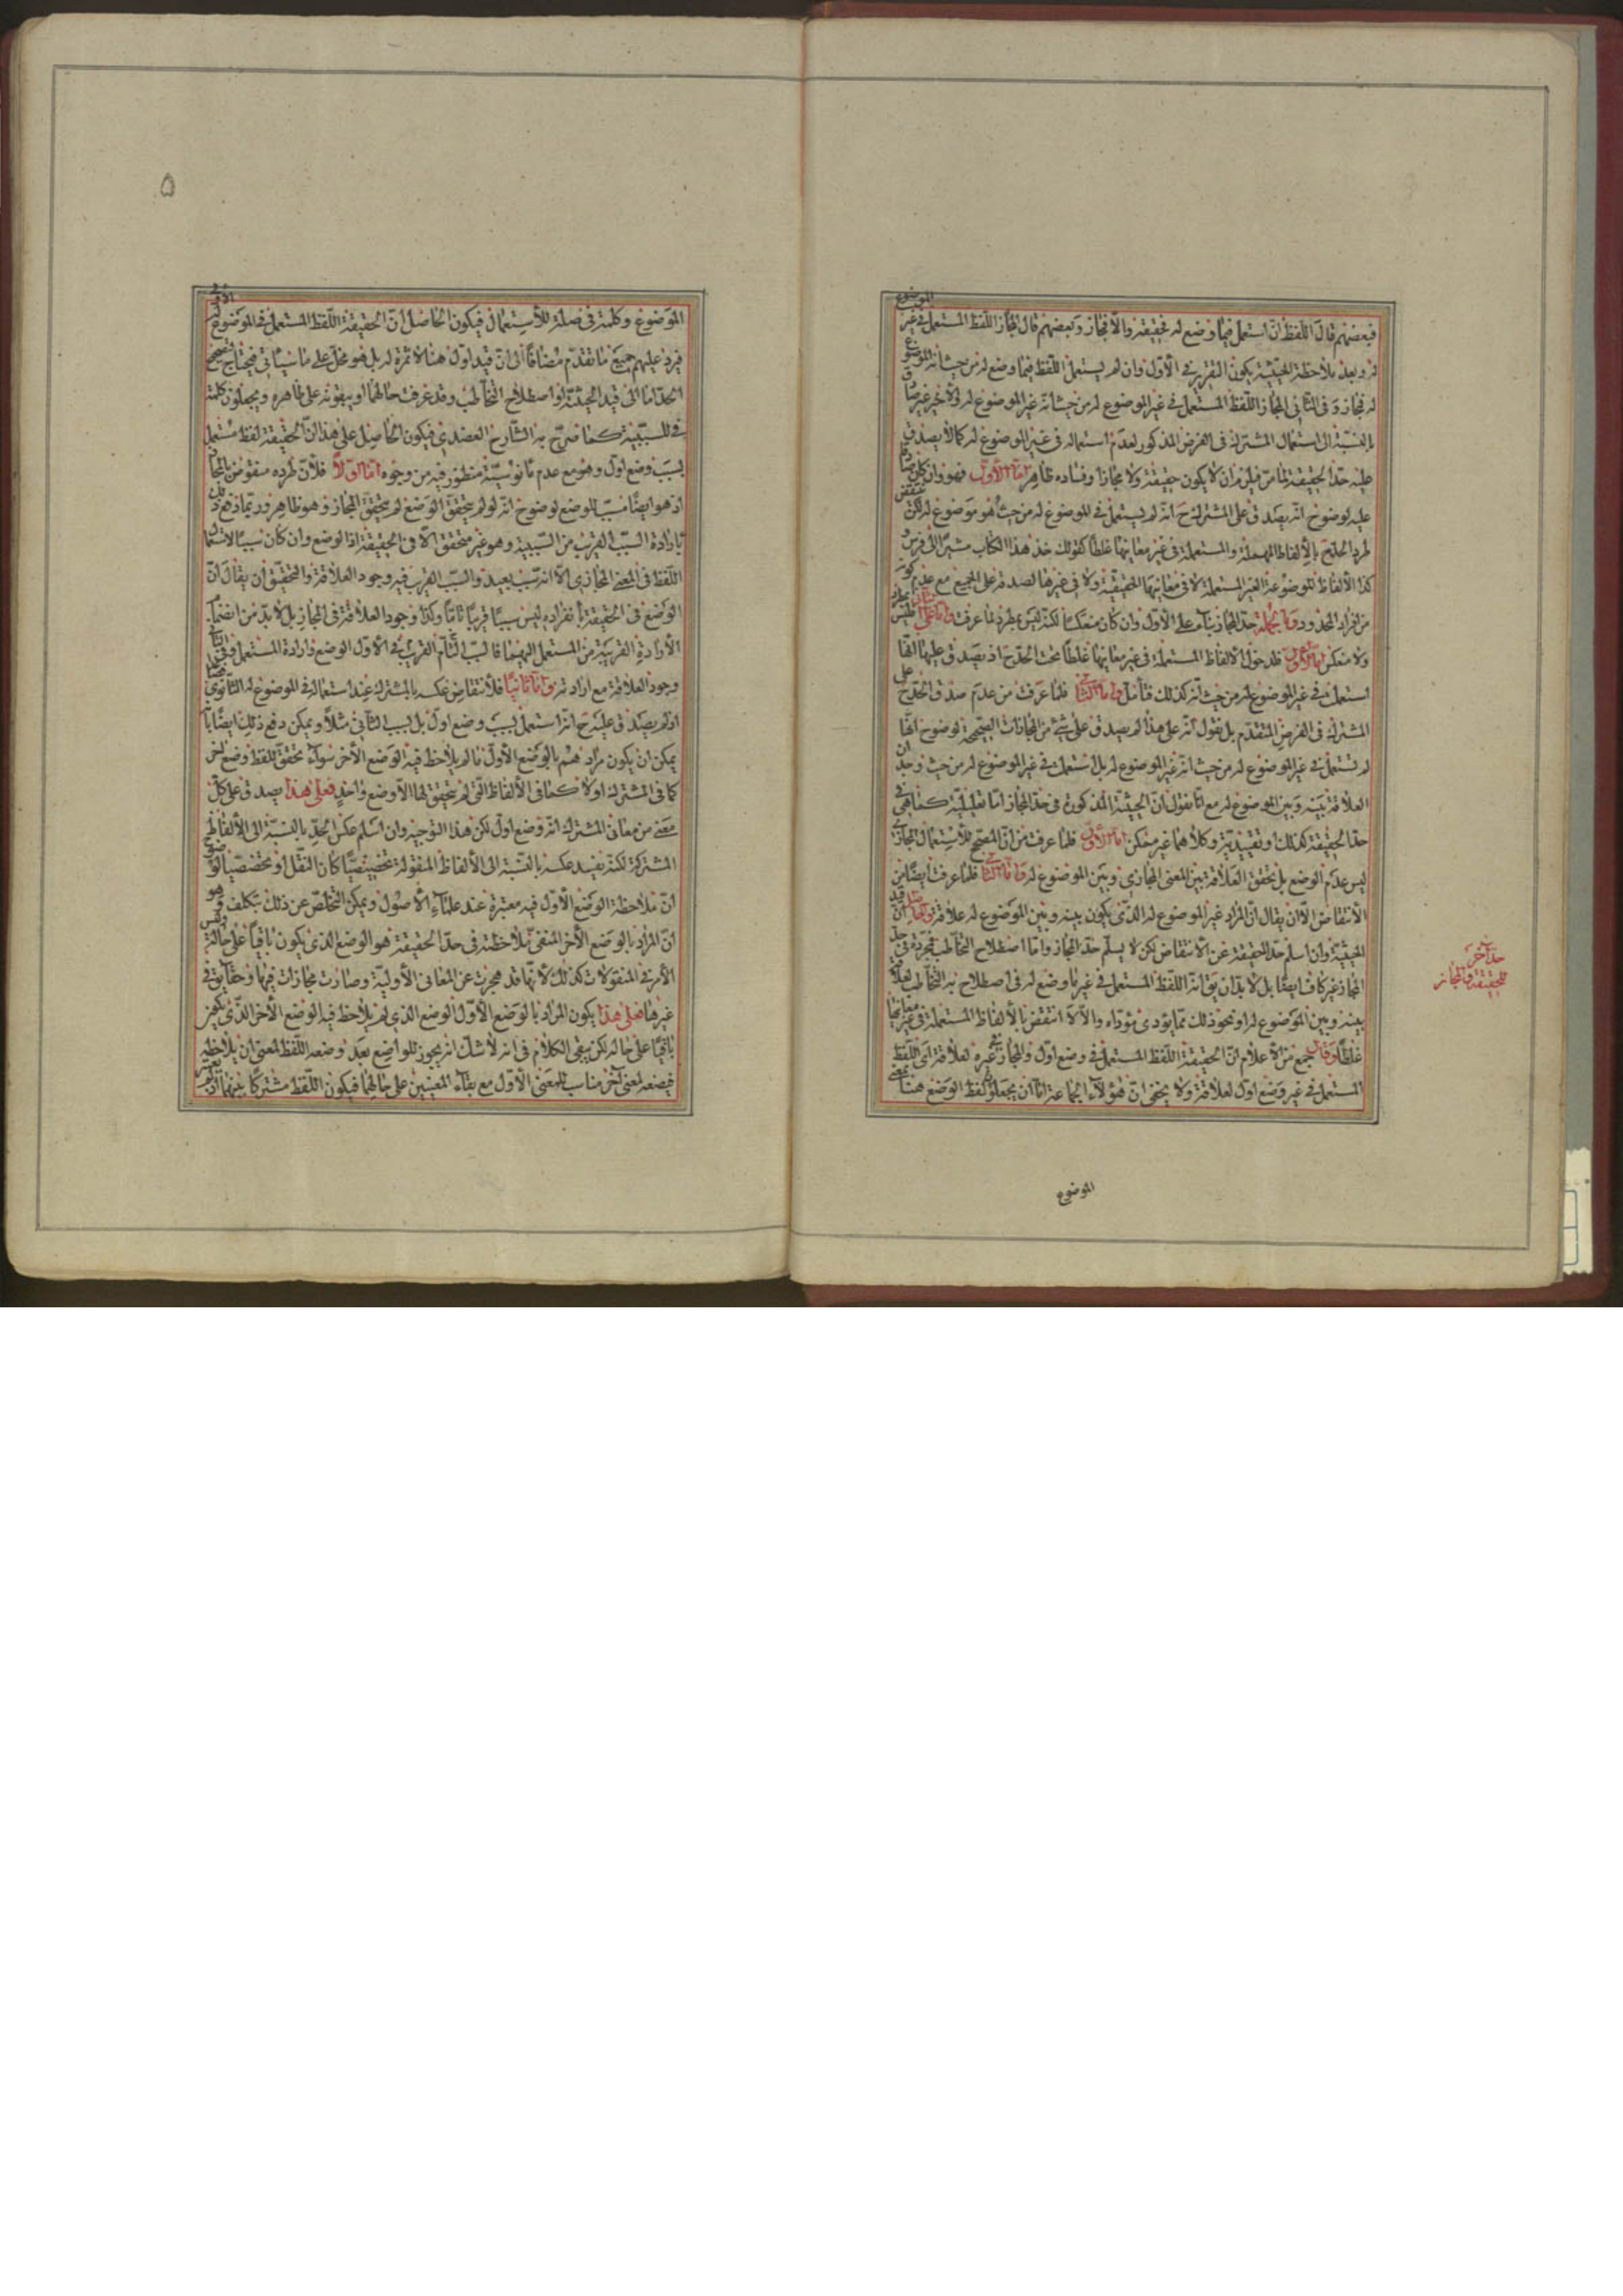 فبعضهم قال اللفظ ان استعمل فيما وضع له فحقيقة والا فمجاز وبعضهم قال المجاز اللفظ المستعمل في غير الموضوع
له وبعد ملاحظة الحيثية يكون التقرير في الأول وان لم يستعمل اللفظ فيما وضع له من حيث انه الموضوع
له فمجاز وفي الثاني المجاز اللفظ المستعمل في غير الموضوع له من حيث انه غير الموضوع له
بالنسبة الى استعمال المشترك في الفرض المذكور لعدم استعماله في غير الموضوع له كما لا يصدق
عليه حد الحقيقة لما مر فيلزم ان لا يكون حقيقة ولا مجازا وفساده ظاهر اما الأول فهو وان كان
عليه لوضوح انه يصدق على المشترك ح انه لم يستعمل في الموضوع له من حيث هو موضوع له لكن ينتقض
طرد الحد ح بالألفاظ المهملة والمستعملة في غير معانيها غلطا كقولك خذ هذا الكتاب مشيرا الى فرس و
كذا الألفاظ الموضوعة الغير المستعملة لا في معانيها الحقيقية ولا في غيرها لصدقه على الجميع مع عدم كونه
من افراد المحدود وبالجملة حد المجاز بناء على الأول وان كان منعكسا لكنه ليس بمطرد لما عرفت واما على الثاني فليس بمطرد
ولا منعكس اما الأول فلدخول الالفاظ المستعملة في غير معانيها غلطا تحت الحد ح اذ يصدق عليها انها
استعملت في غير الموضوع له من حيث انه كذلك فتأمل واما الثاني فلما عرفت من عدم صدق الحد ح على
المشترك في الفرض المتقدم بل نقول انه على هذا لم يصدق على شيء من المجازات الصحيحة لوضوح انها
لم تستعمل في غير الموضوع له من حيث انه غير الموضوع له بل استعملت في غير الموضوع له من حيث وجد ان
العلاقة بينه وبين الموضوع له مع انا نقول ان الحيثية المذكورة في حد المجاز اما تعليلية كما هي في
حد الحقيقة كذلك او تقييدية وكلاهما غير ممكن اما الأول فلما عرفت من ان المصحح للاستعمال المجازي
ليس عدم الوضع بل تحقق العلاقة بين المعنى المجازي وبين الموضوع له واما الثاني فلما عرفت ايضا من
الانتقاض الا ان يقال ان المراد غير الموضوع له الذي يكون بينه وبين الموضوع له علاقة والحاصل ان قيد
الحيثية وان اسلم حد الحقيقة عن الانتقاض لكن لا يسلم حد المجاز واما اصطلاح التخاطب فمجرده في حد
المجاز غير كاف ايضا بل لا بد ان يق انه اللفظ المستعمل في غير ما وضع له في اصطلاح به التخاطب لعلاقة
بينه وبين الموضوع له او نحو ذلك مما يؤدى مؤداه والا لانتقض بالألفاظ المستعملة في غير معانيها
غلطا وقال جمع من الأعلام ان الحقيقة اللفظ المستعمل في وضع اول والمجاز في غيره لعلاقة اي اللفظ
المستعمل في غير وضع اول لعلاقة ولا يخفى ان هؤلاء الجماعة اما ان يجعلوا لفظ الوضع هنا بمعنى
حد آخر
للحقيقة والمجاز
الموضوع
۵
الموضوع وكلمة في صلة للاستعمال فيكون الحاصل ان الحقيقة اللفظ المستعمل في الموضوع له الأول
فيرد عليهم جميع ما تقدم مضافا الى ان قيد اول هنا لا ثمرة له بل هو مخل على ما سيأتي فيحتاج تصحيح
الحد اما الى قيد الحيثية او اصطلاح التخاطب وقد عرفت حالهما او يبقونه على ظاهره ويجعلون كلمة
في للسببية كما صرح به الشارح العضدي فيكون الحاصل على هذا ان الحقيقة لفظ مستعمل
بسبب وضع اول وهو مع عدم مانوسيته منظور فيه من وجوه اما اولا فلان طرده منقوض بالمجاز
اذ هو ايضا مسبب للوضع لوضوح انه لو لم يتحقق الوضع لم يتحقق المجاز وهو ظاهر وربما دفع ذلك
بارادة السبب القريب من السببية وهو غير متحقق الا في الحقيقة اذ الوضع وان كان سببا لاستعمال
اللفظ في المعنى المجازي الا انه سبب بعيد والسبب القريب فيه وجود العلاقة والتحقيق ان يقال ان
الوضع في الحقيقة بانفراده ليس سببا قريبا تاما وكذا وجود العلاقة في المجاز بل لا بد من انضمام
الارادة القريبة من المستعمل اليهما فالسبب التام القريب في الأول الوضع وارادة المستعمل وفي الثاني
وجود العلاقة مع ارادته واما ثانيا فلانتقاض عكسه بالمشترك عند استعماله في الموضوع له الثانوي
اذ لم يصدق عليه ح انه استعمل بسبب وضع اول بل بسبب الثاني مثلا ويمكن دفع ذلك ايضا بانه
يمكن ان يكون مرادهم بالوضع الأول ما لم يلاحظ فيه الوضع الآخر سواء تحقق للفظ وضع آخر
كما في المشترك او لا كما في الألفاظ التي لم يتحقق لها الا وضع واحد فعلى هذا يصدق على كل
معنى من معاني المشترك انه وضع اول لكن هذا التوجيه وان اسلم عكس الحد بالنسبة الى الألفاظ
المشتركة لكنه يفسد عكسه بالنسبة الى الألفاظ المنقولة تخصيصيا كان النقل او تخصصيا لوضوح
ان ملاحظة الوضع الأول فيه معتبرة عند علماء الأصول ويمكن التخلص عن ذلك بتكلف وهو
ان المراد بالوضع الآخر المنفي ملاحظته في حد الحقيقة هو الوضع الذي يكون باقيا على حاله وليس
الأمر في المنقولات كذلك لأنها قد هجرت عن المعاني الأولية وصارت مجازات فيها وحقايق في
غيرها فعلى هذا يكون المراد بالوضع الأول الوضع الذي لم يلاحظ فيه الوضع الآخر الذي يكون
باقيا على حاله لكن يبقى الكلام في انه لا شك انه يجوز للواضع بعد وضعه اللفظ لمعنى ان يلاحظه
فيضعه لمعنى آخر مناسب للمعنى الأول مع بقاء المعنيين على حالهما فيكون اللفظ مشتركا بينهما